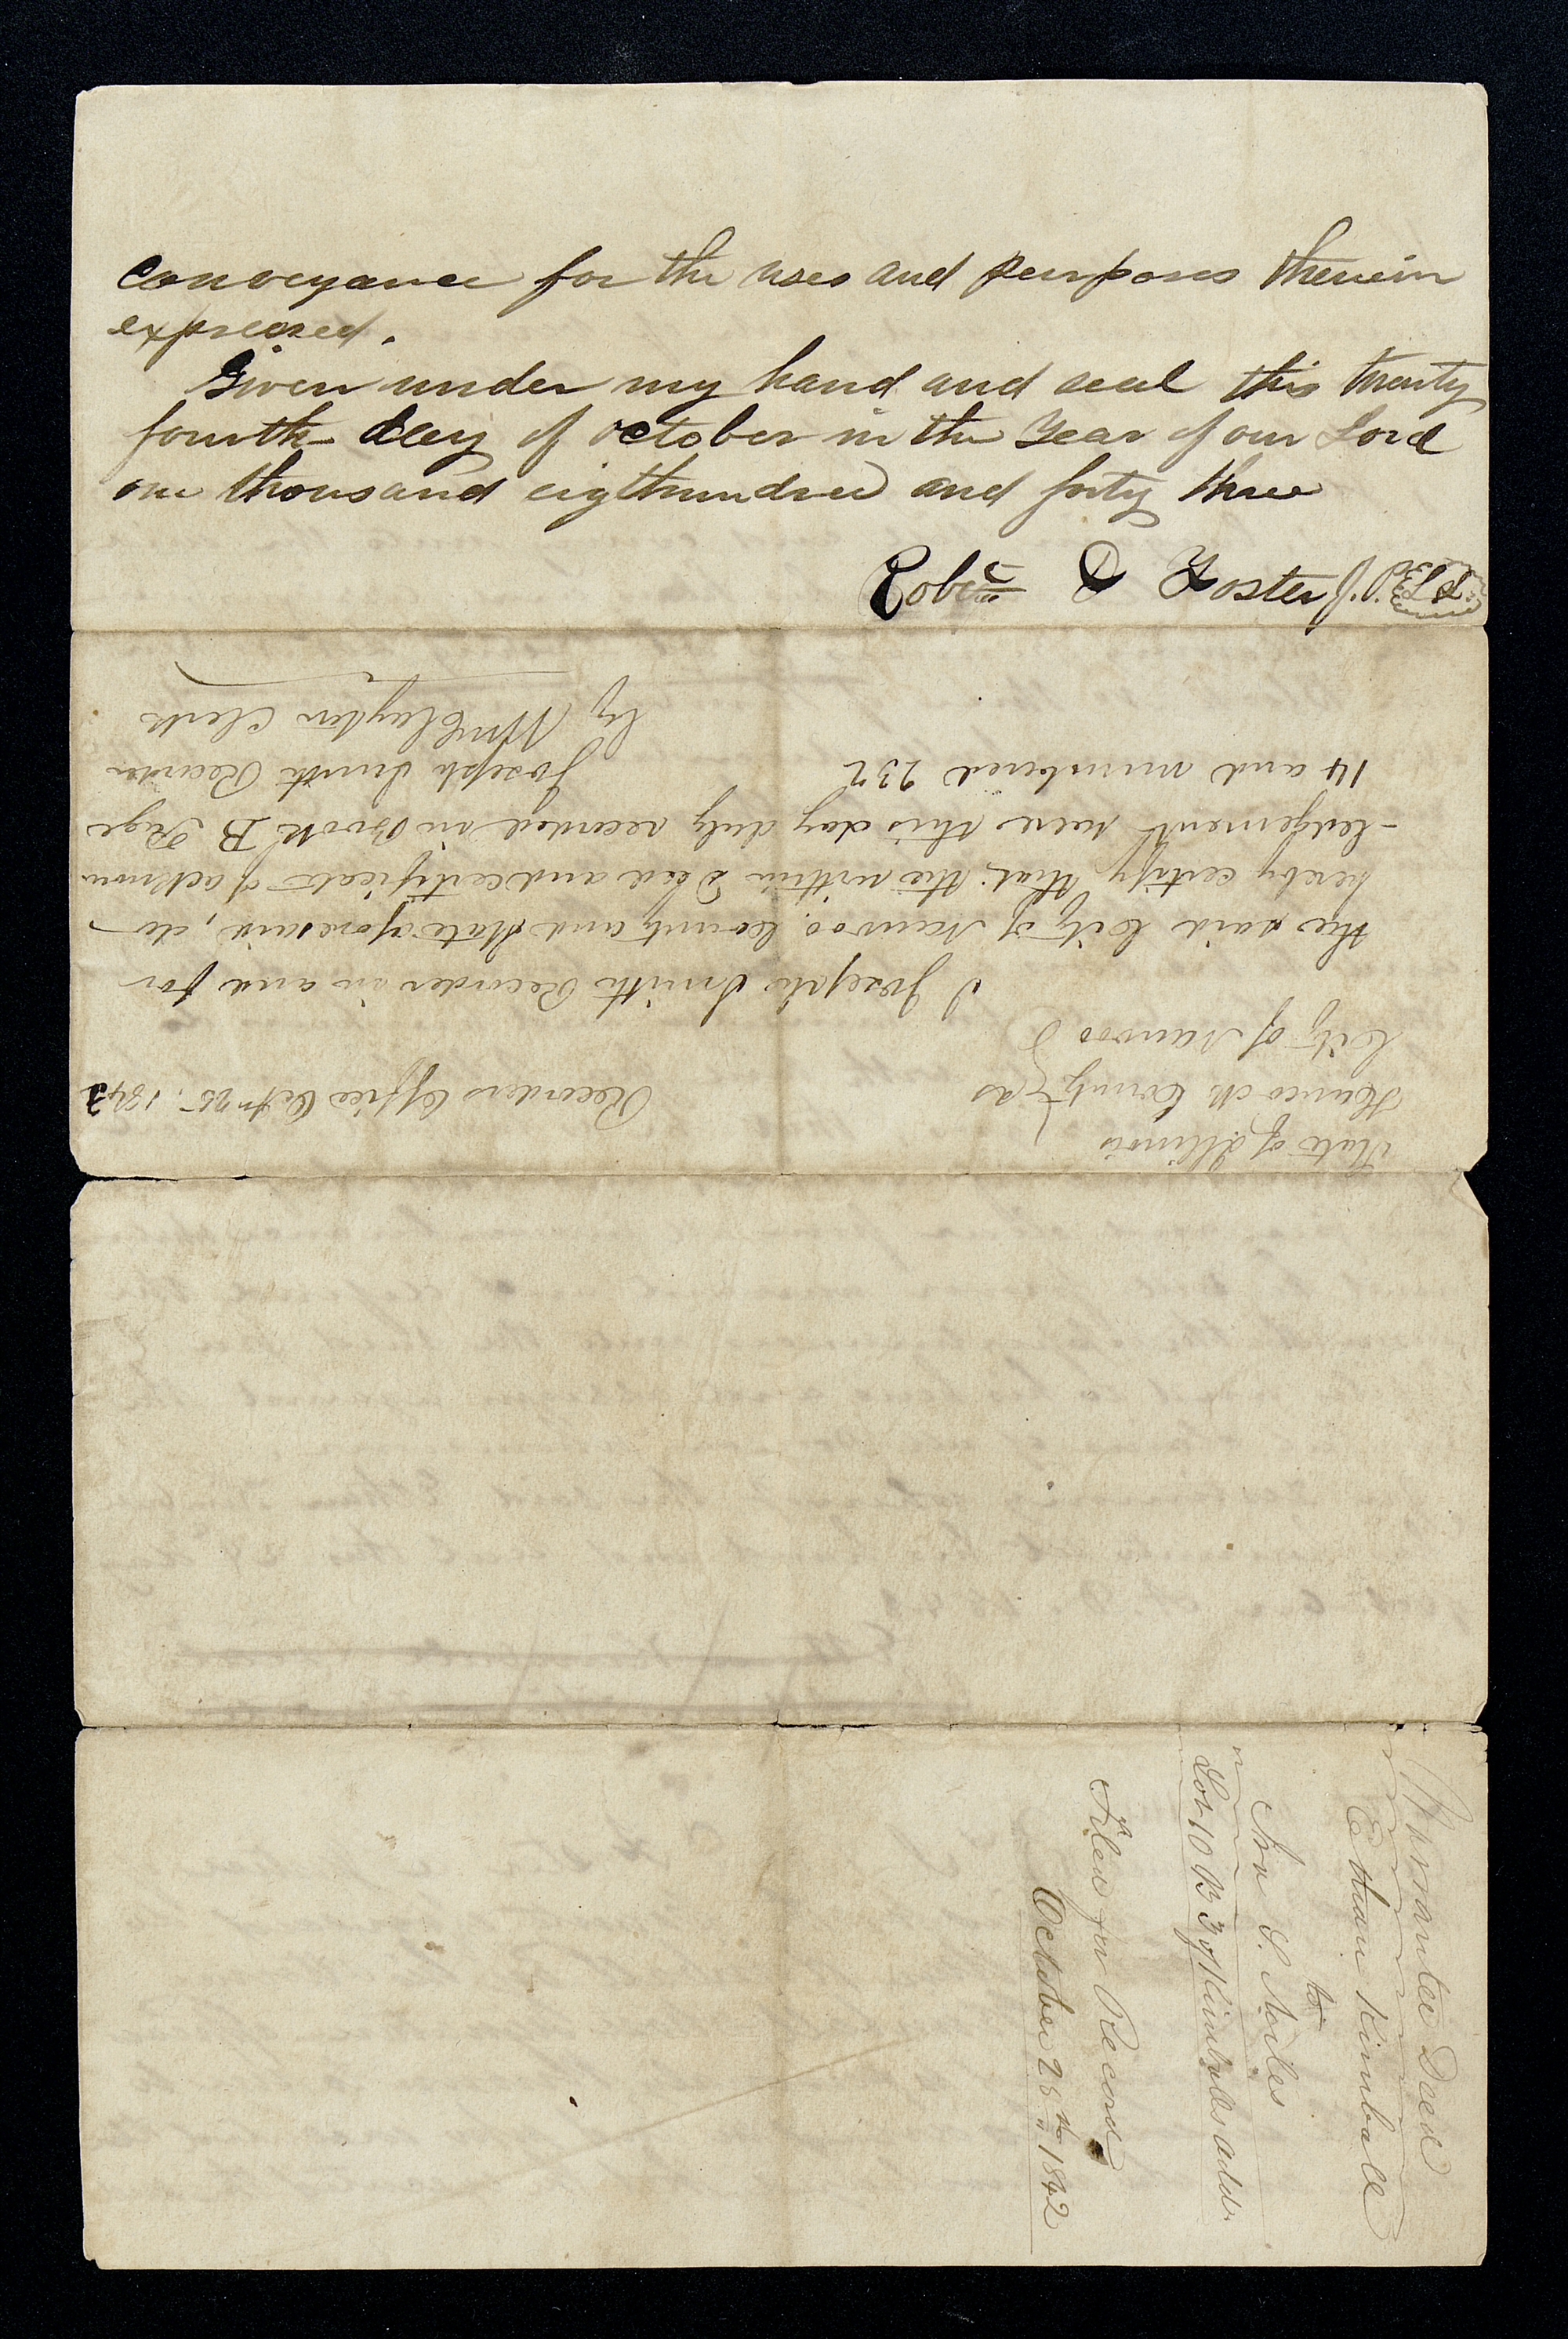 conveyance for the uses and purposes therein
expressed.
Given under my hand and seal this twenty
fourth day of october in the year of our Lord
one thousand eigthundred and forty three
Robert D Foster J.P.
State of Illinois
Hancock County ss
City of Nauvoo
Recorders Office Octr 25. 1843
I Joseph Smith Recorder in and for
the said City of Nauvoo, County and State aforesaid, do
hereby certify that the within Deed and certificate of acknow
-ledgement were this day duly recorded in Book B Page
14 and numbered 232
Joseph Smith Recorder
by Wm Clayton Clerk
Warrantee Deed
Ethan Kimball
to
S. Miles
Lot 10 B 3 of Kimballs addn
Filed for Record
October 25th 1842